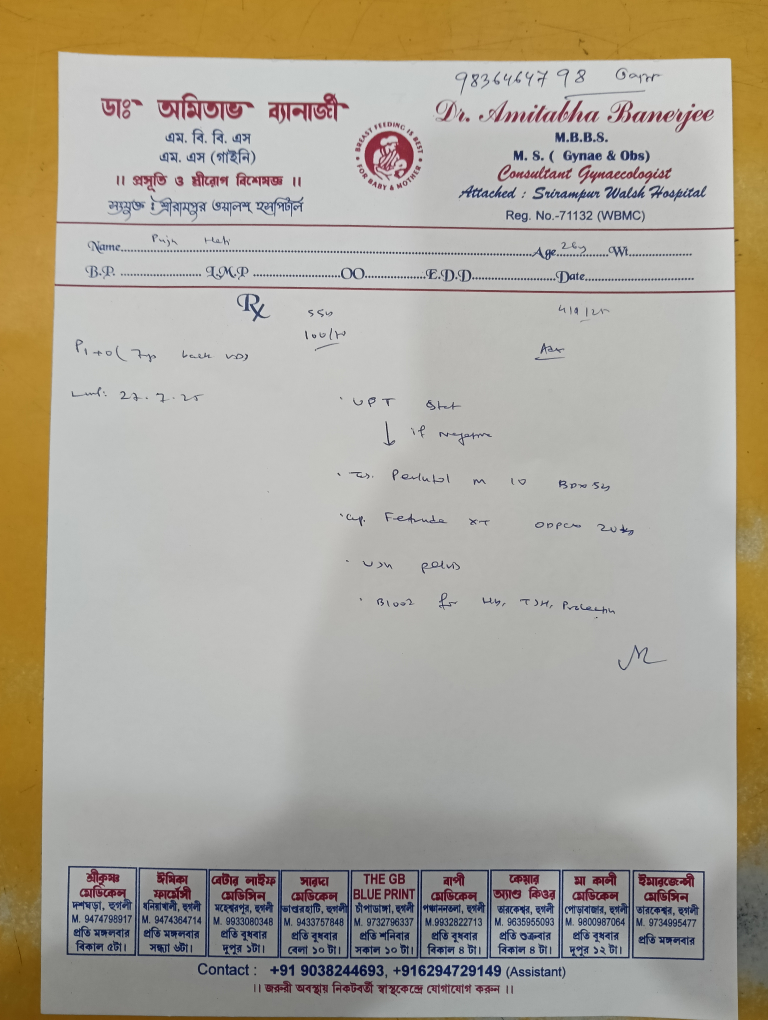 9836464798
ডাঃ অমিতাভ ব্যানার্জী
এম. বি. বি. এস
এম. এস (গাইনি)
।। প্রসূতি ও স্ত্রীরোগ বিশেষজ্ঞ ।।
সংযুক্ত : শ্রীরামপুর ওয়ালশ হসপিটাল
BREAST FEEDING IS BEST
FOR BABY & MOTHER
Dr. Amitabha Banerjee
M.B.B.S.
M. S. ( Gynae & Obs)
Consultant Gynaecologist
Attached : Srirampur Walsh Hospital
Reg. No.-71132 (WBMC)
Name Puja Age 26y Wt
B.P. L.M.P OO E.D.D Date
Rx
4/9/25
100/70
P1+0 ( 7yr back
LMP: 27.7.25
· UPT Stat
↓ if Negative
· M 10 BD x 5d
· Cap. XT 20
· USG pelvis
· Blood for Hb, TSH, Prolactin
শ্রীকৃষ্ণ মেডিকেল
দশঘড়া, হুগলী
M. 9474798917
প্রতি মঙ্গলবার
বিকাল ৫টা।
ঈশিকা ফার্মেসী
ধনিয়াখালী, হুগলী
M. 9474364714
প্রতি মঙ্গলবার
সন্ধ্যা ৬টা।
বেটার লাইফ মেডিসিন
মহেশ্বরপুর, হুগলী
M. 9933080348
প্রতি বুধবার
দুপুর ১টা।
সারদা মেডিকেল
ভাণ্ডারহাটি, হুগলী
M. 9433757848
প্রতি বুধবার
বেলা ১০ টা।
THE GB
BLUE PRINT
চাঁপাডাঙ্গা, হুগলী
M. 9732796337
প্রতি শনিবার
সকাল ১০ টা।
বাপী মেডিকেল
পঞ্চাননতলা, হুগলী
M.9932822713
প্রতি বুধবার
বিকাল ৪ টা।
কেয়ার অ্যাণ্ড কিওর
তারকেশ্বর, হুগলী
M. 9635955093
প্রতি শুক্রবার
বিকাল ৪ টা।
মা কালী মেডিকেল
পোড়াবাজার, হুগলী
M. 9800987064
প্রতি বুধবার
দুপুর ১২ টা।
ইমারজেন্সী মেডিসিন
তারকেশ্বর, হুগলী
M. 9734995477
প্রতি মঙ্গলবার
Contact : +91 9038244693, +916294729149 (Assistant)
।। জরুরী অবস্থায় নিকটবর্তী স্বাস্থকেন্দ্রে যোগাযোগ করুন ।।